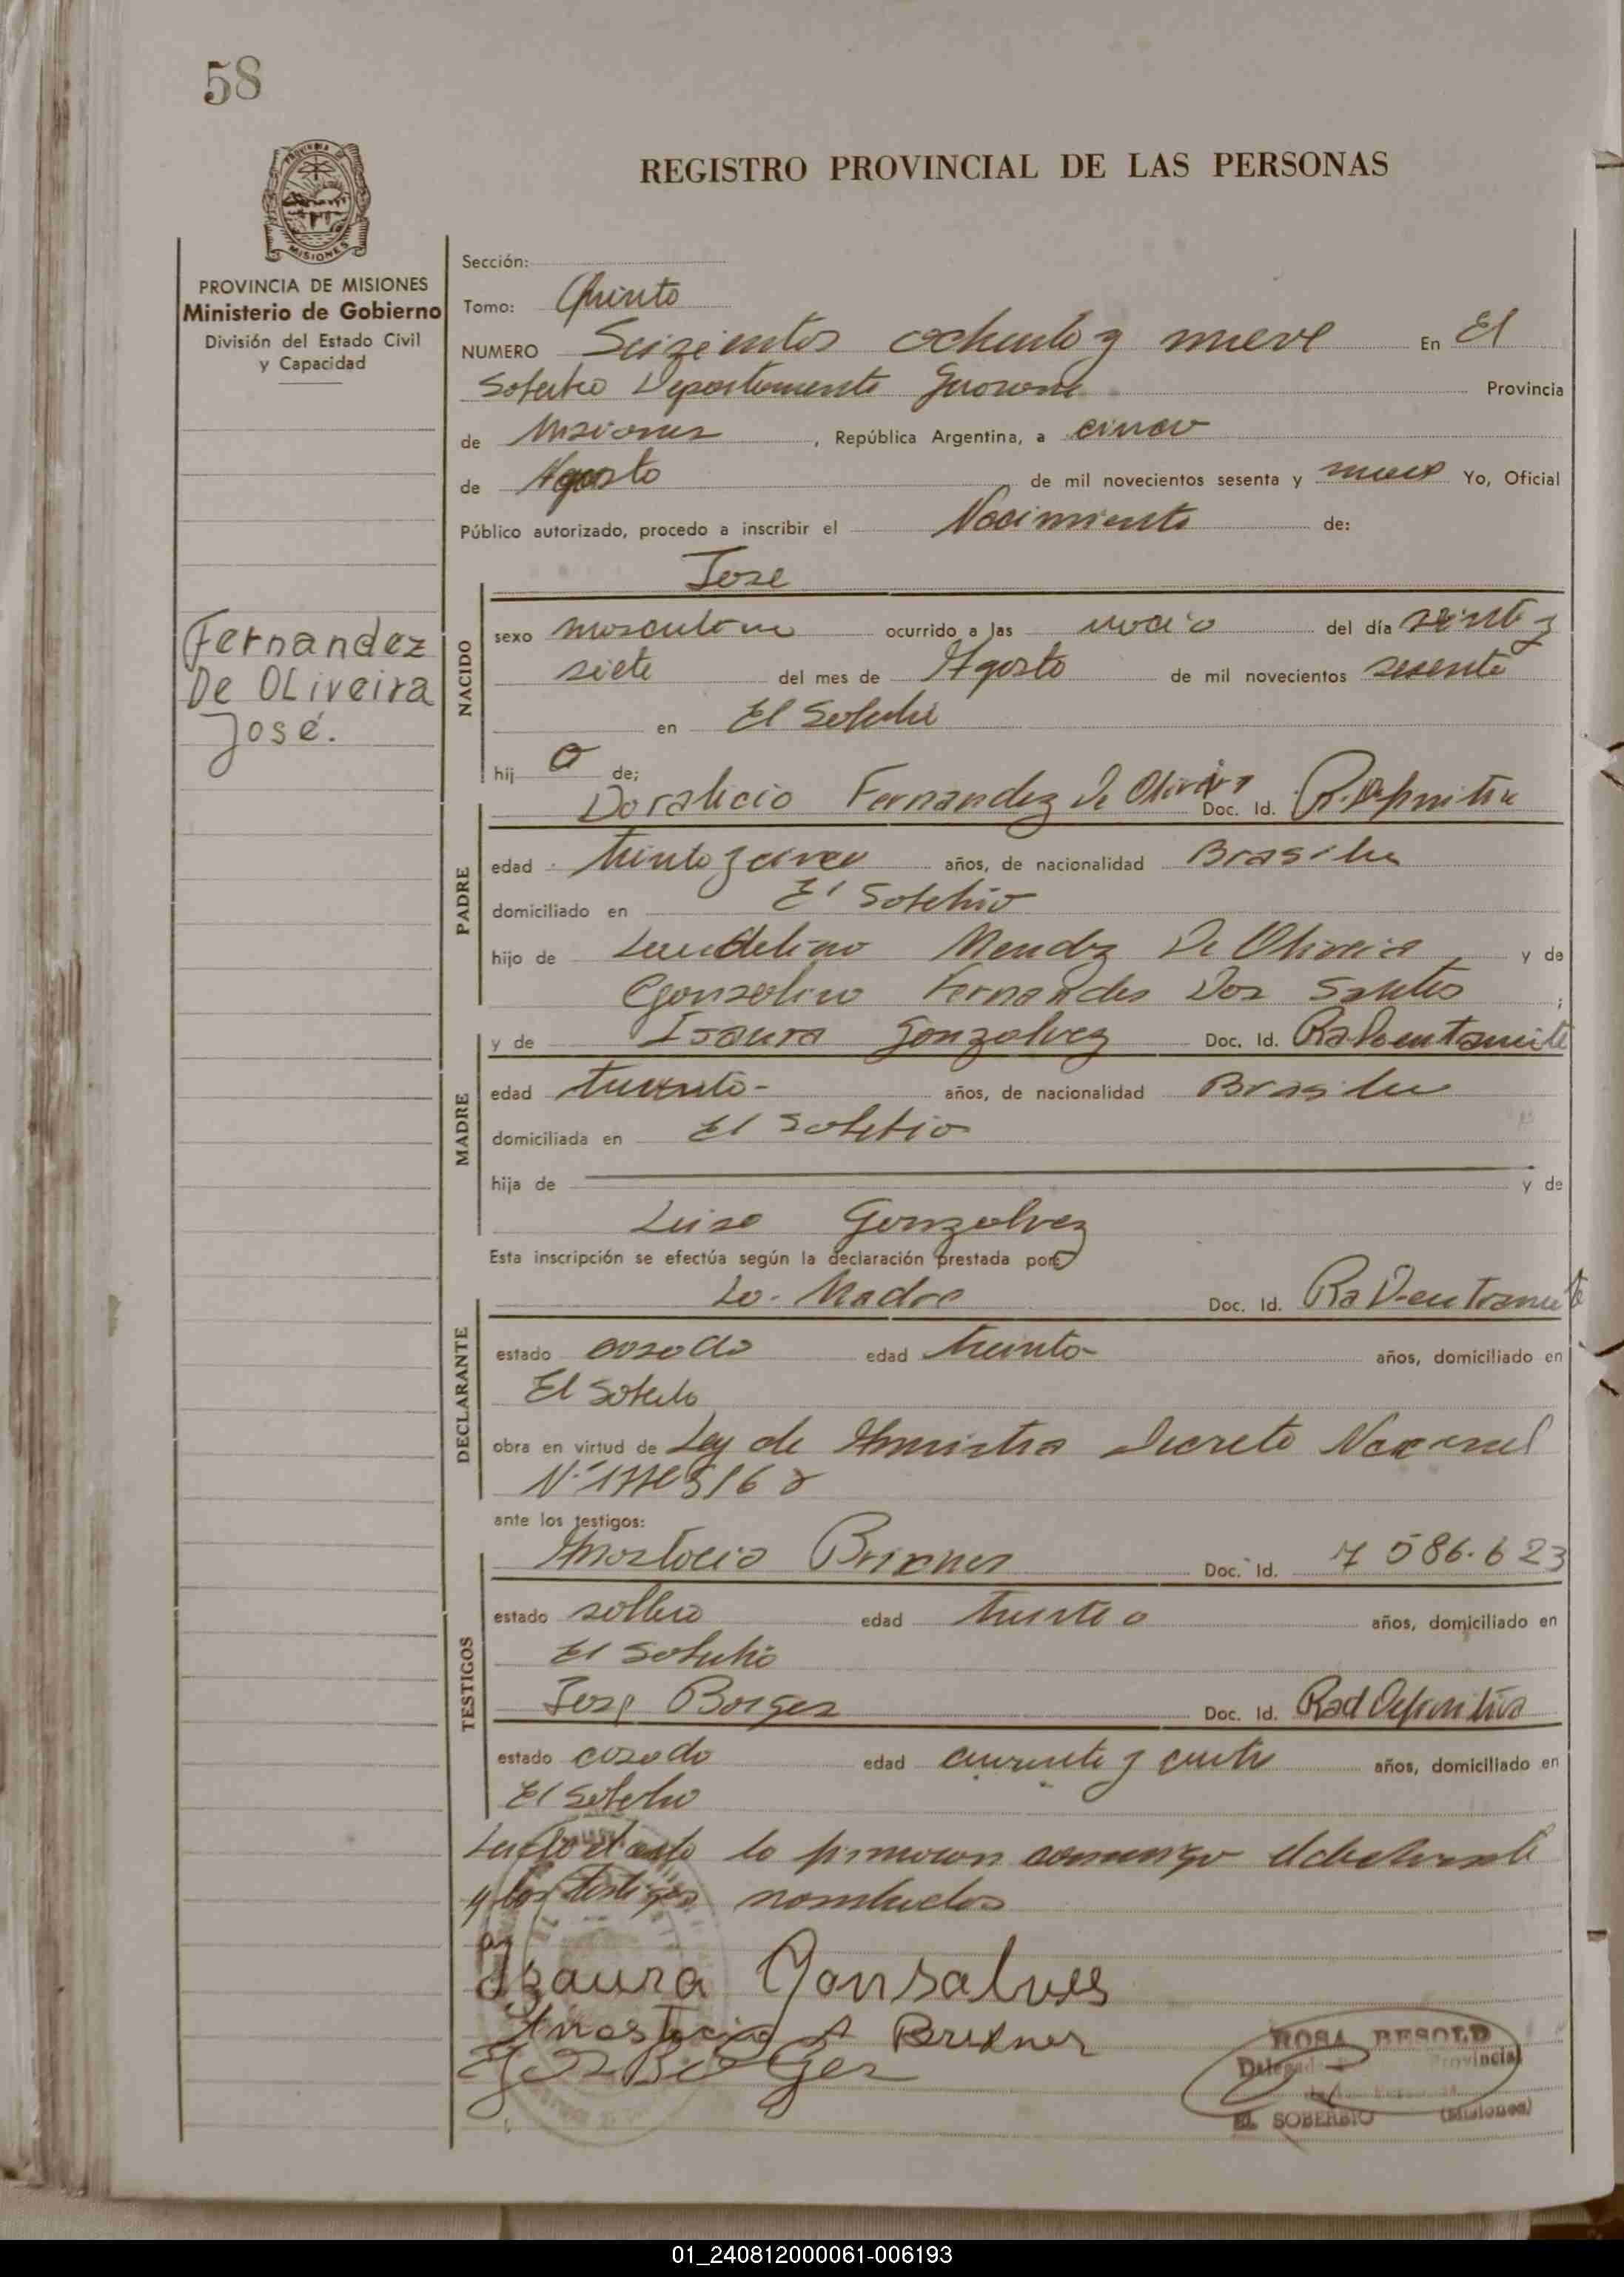 58
REGISTRO PROVINCIAL DE LAS PERSONAS
PROVINCIA DE MISIONES
MISIONES
PROVINCIA DE MISIONES
Ministerio de Gobierno
División del Estado Civil
y Capacidad
Fernandez
De OLiveira
José.
Sección:
Tomo: Quinto
NUMERO Seizientos ochenta y nueve En El
Soberbio Departamento Guarani Provincia
de Misiones, República Argentina, a cinco
de Agosto de mil novecientos sesenta y nueve Yo, Oficial
Público autorizado, procedo a inscribir el Nacimiento de:
Jose
NACIDO
sexo masculino ocurrido a las del día veinte y
siete del mes de Agosto de mil novecientos sesenta
en El Soberbio
hij o de;
Doralicio Fernandez De Oliveira Doc. Id. R. Definitiva
PADRE
edad treinta y cinco años, de nacionalidad Brasilera
domiciliado en El Soberbio
hijo de Laudelino Mendez De Oliveira y de
Gonzalina Fernandes Dos Santos ;
y de Isaura Gonzalvez Doc. Id. Rad en tramite
MADRE
edad treinta- años, de nacionalidad Brasilera
domiciliada en El Soberbio
hija de y de
Luisa Gonzalvez
Esta inscripción se efectúa según la declaración prestada por:
La Madre Doc. Id. Rad-en tramite
DECLARANTE
estado casada edad treinta- años, domiciliado en
El Soberbio
obra en virtud de Ley de Amnistia Decreto Nacional
ante los testigos:
Anastacio Brixner Doc. Id. 7 586.623
TESTIGOS
estado soltero edad treinta años, domiciliado en
El Soberbio
Jose Borges Doc. Id. Rad Definitiva
estado casado edad cuarenta y cuatro años, domiciliado en
El Soberbio
Leida el acta la firmaron conmigo el declarante
y los testigos nombrados
Izaura Gonsalves
Anastacio A Brixner
Borges
ROSA BESOLD
Provincial
EL SOBERBIO (Misiones)
01_240812000061-006193